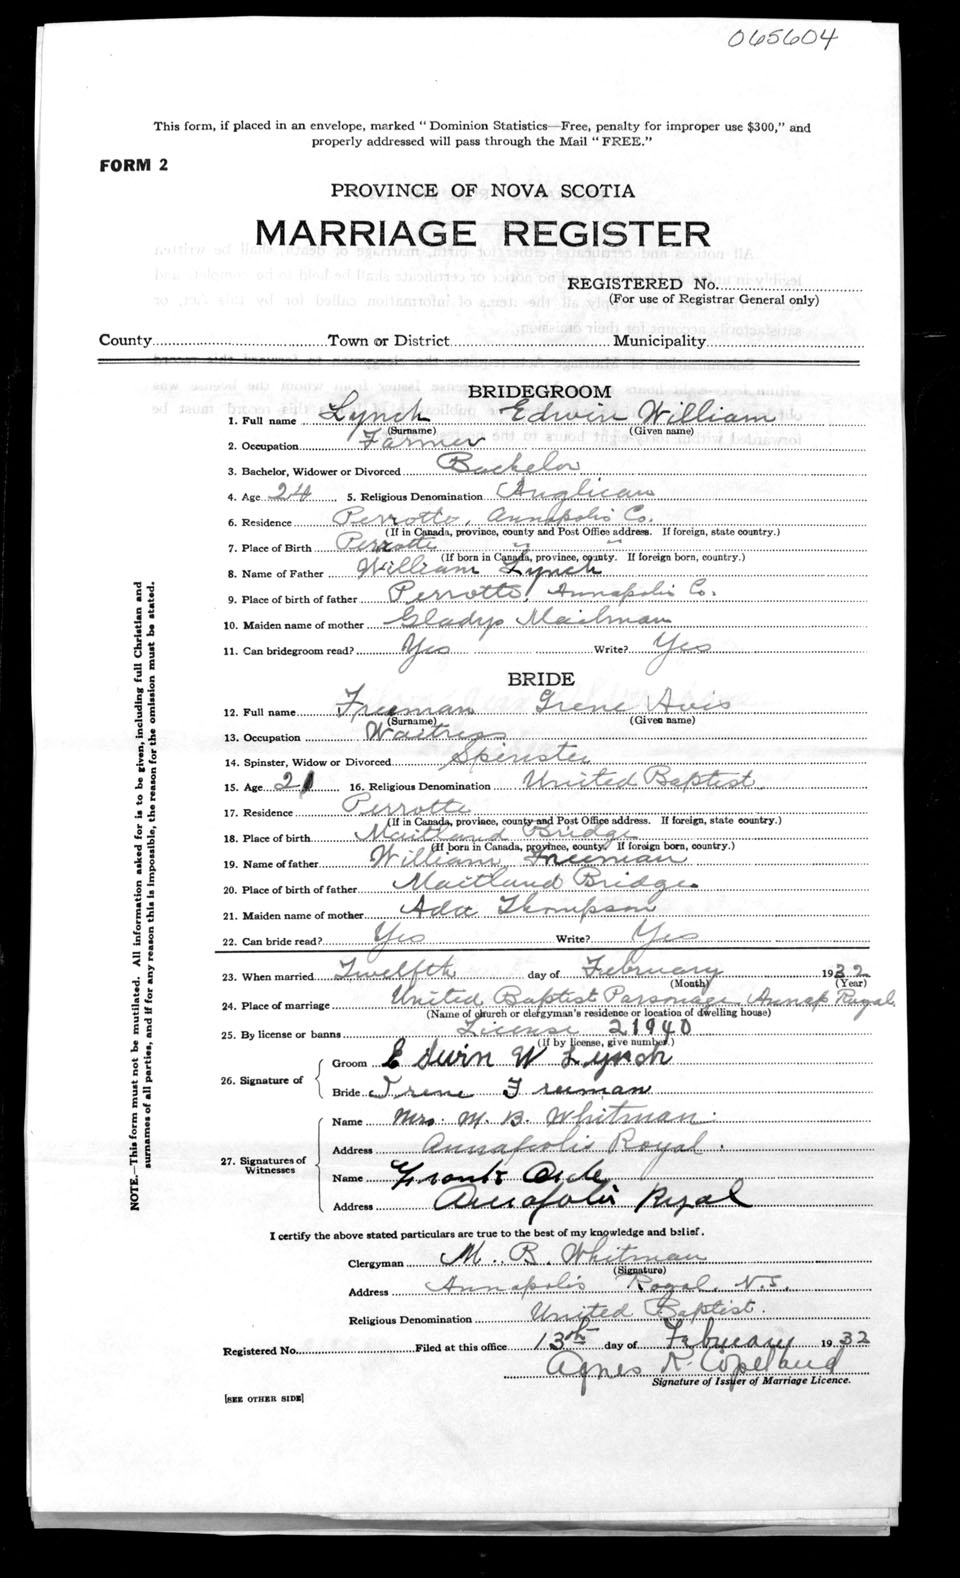 065604
This form, if placed in an envelope, marked “ Dominion Statistics—Free, penalty for improper use $300,” and
properly addressed will pass through the Mail “ FREE.”
FORM 2
PROVINCE OF NOVA SCOTIA
MARRIAGE REGISTER
REGISTERED No.
(For use of Registrar General only)
County Town or District Municipality
BRIDEGROOM
1. Full name Lynch Edwin William
(Surname) (Given name)
2. Occupation Farmer
3. Bachelor, Widower or Divorced Bachelor
4. Age 24 5. Religious Denomination Anglican
6. Residence Perrotte, Annapolis Co.
(If in Canada, province, county and Post Office address. If foreign, state country.)
7. Place of Birth Perrotte " "
(If born in Canada, province, county. If foreign born, country.)
8. Name of Father William Lynch
9. Place of birth of father Perrotte, Annapolis Co.
10. Maiden name of mother Gladys Mailman
11. Can bridegroom read? Yes Write? Yes
BRIDE
12. Full name Freeman Irene Avis
(Surname) (Given name)
13. Occupation Waitress
14. Spinster, Widow or Divorced Spinster
15. Age 21 16. Religious Denomination United Baptist
17. Residence Perrotte
(If in Canada, province, county and Post Office address. If foreign, state country.)
18. Place of birth Maitland Bridge
(If born in Canada, province, county. If foreign born, country.)
19. Name of father William Freeman
20. Place of birth of father Maitland Bridge
21. Maiden name of mother Ada Thompson
22. Can bride read? Yes Write? Yes
23. When married Twelfth day of February 1932
(Month) (Year)
24. Place of marriage United Baptist Parsonage Annap Royal
(Name of church or clergyman's residence or location of dwelling house)
25. By license or banns License 21940
(If by license, give number.)
26. Signature of Groom Edwin W Lynch
Bride Irene Freeman
27. Signatures of Witnesses Name Mrs. M. B. Whitman
Address Annapolis Royal.
Name Frank
Address Annapolis Royal
I certify the above stated particulars are true to the best of my knowledge and belief.
Clergyman M. B. Whitman
(Signature)
Address Annapolis Royal, N.S.
Religious Denomination United Baptist.
Registered No. Filed at this office 13th day of February 1932
Agnes K. Copeland
Signature of Issuer of Marriage Licence.
[SEE OTHER SIDE]
NOTE.—This form must not be mutilated. All information asked for is to be given, including full Christian and
surnames of all parties, and if for any reason this is impossible, the reason for the omission must be stated.